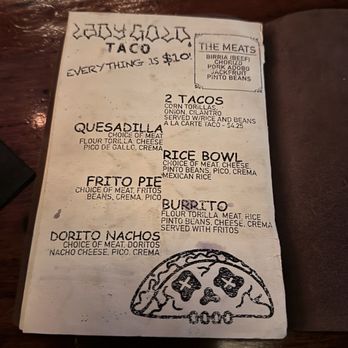 LADY GOLD
TACO
EVERYTHING IS $10!
THE MEATS
BIRRIA (BEEF)
CHORIZO
PORK ADOBO
JACKFRUIT
PINTO BEANS
2 TACOS
CORN TORTILLAS,
ONION, CILANTRO
SERVED W/RICE AND BEANS
A LA CARTE TACO - $4.25
QUESADILLA
CHOICE OF MEAT
FLOUR TORILLA, CHEESE
PICO DE GALLO, CREMA
RICE BOWL
CHOICE OF MEAT, CHEESE
PINTO BEANS, PICO, CREMA
MEXICAN RICE
FRITO PIE
CHOICE OF MEAT, FRITOS
BEANS, CREMA, PICO
BURRITO
FLOUR TORILLA, MEAT, RICE
PINTO BEANS, CHEESE, CREMA
SERVED WITH FRITOS
DORITO NACHOS
CHOICE OF MEAT, DORITOS
NACHO CHEESE, PICO, CREMA